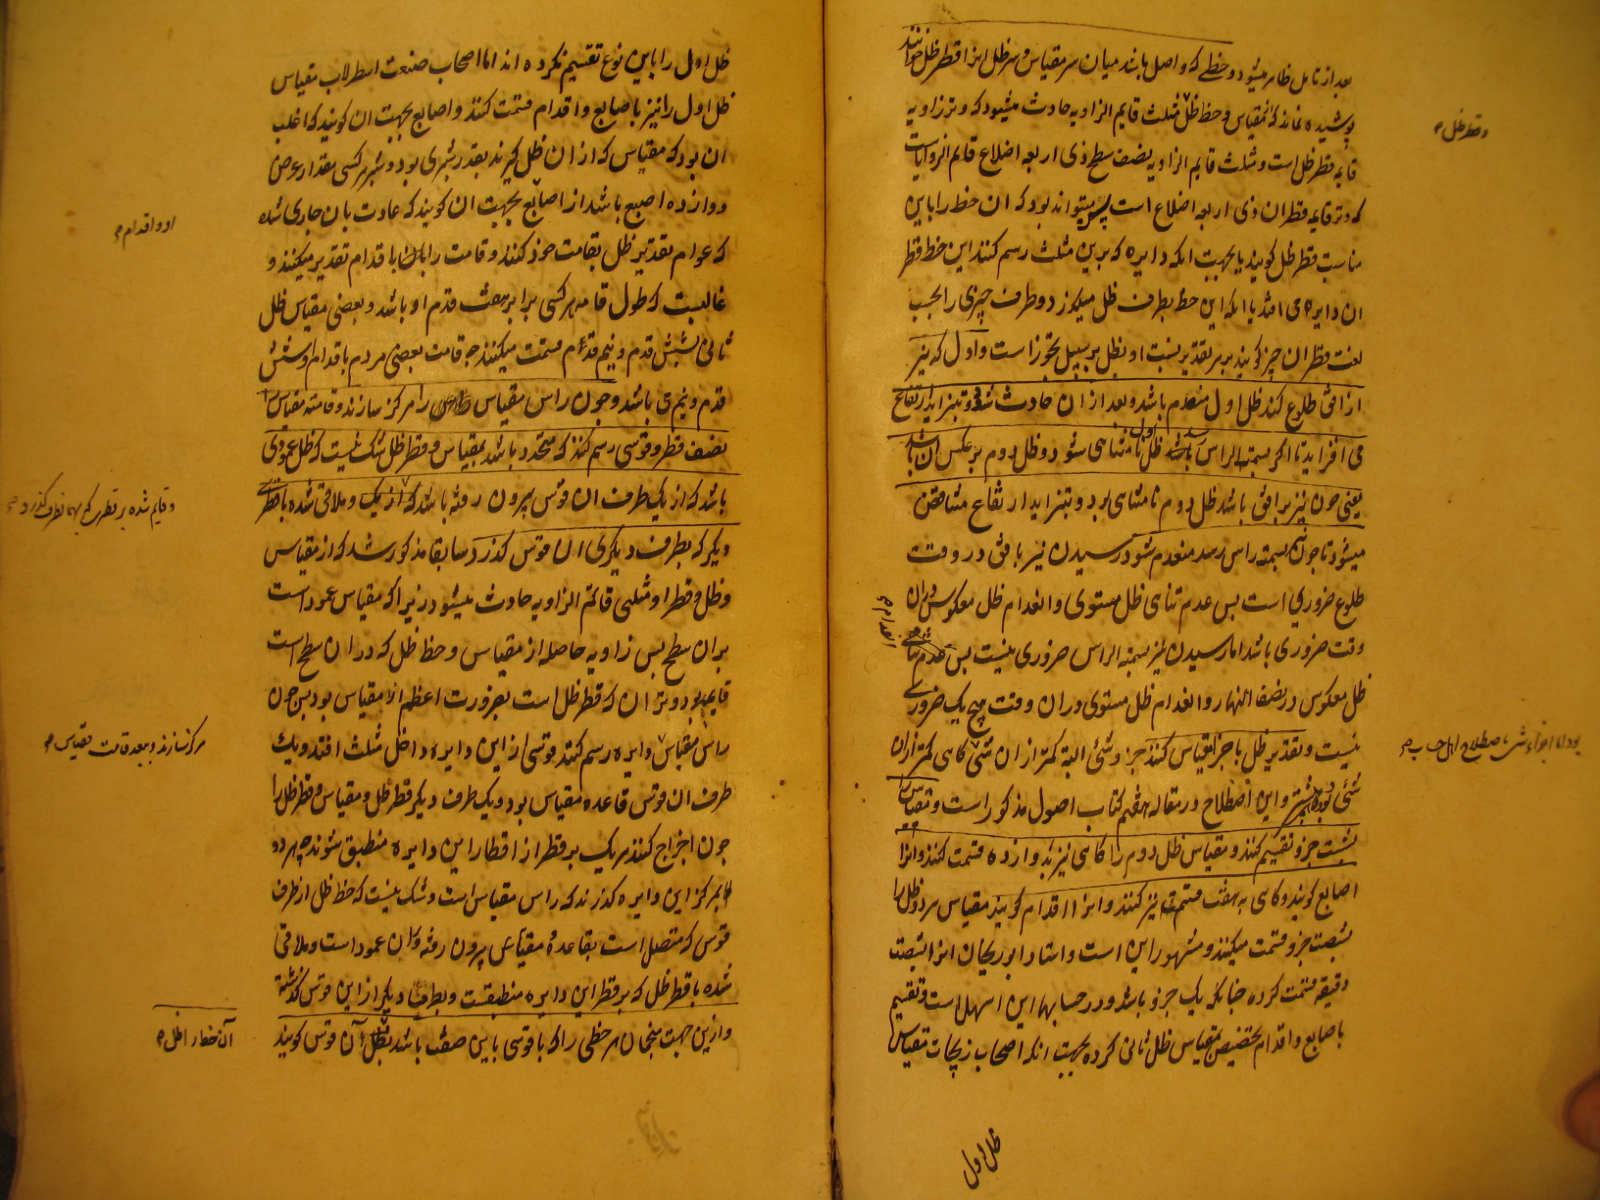 بعد از تامل ظاهر میشود و خطی که واصل باشد میان سر مقیاس و سر ظل انرا قطر ظل خوانند
پوشیده نماند که از مقیاس و خط ظل مثلث قایم الزاویه حادث میشود که وتر زاویه
قایمه قطر ظل است و مثلث قایم الزاویه نصف سطح ذی اربعه اضلاع قایم الزوایاست
که وتر قایمه قطر ان ذی اربعه اضلاع است پس میتواند بود که ان خط را باین
مناسبت قطر ظل کویند یا بجهت انکه دایره که برین مثلث رسم کنند این خط قطر
ان دایره می افتد یا انکه این خط بطرف ظل میکذرد و طرف چیزی را بحسب
لغت قطر ان چیز کویند بر هر تقدیر نسبت او بظل بر سبیل تجوز است و اول که نیر
از افق طلوع کند ظل اول منعدم باشد و بعد از ان حادث شود و بتزاید ارتفاع
می افزاید تا اکر بسمت الراس رسد ظل اول نامتناهی شود و ظل دوم بر عکس ان باشد
یعنی چون نیر بر افق باشد ظل دوم نامتناهی بود و بتزاید ارتفاع متناقص
میشود تا چون بسمت راس رسد منعدم شود رسیدن نیر بافق در وقت
طلوع ضروری است پس عدم تناهی ظل مستوی و انعدام ظل معکوس دران
وقت ضروری باشد اما رسیدن نیر بسمت الراس ضروری نیست پس عدم تناهی
ظل معکوس در نصف النهار و انعدام ظل مستوی دران وقت هیچ یک ضروری
نیست و تقدیر ظل باجزا مقیاس کنند جزو شئ البته کمتر از ان شئ کاهی کمتر ازان
شئ بود و این اصطلاح در مقاله هفتم کتاب اصول مذکور است و مقیاس را
بشصت جزو تقسیم کنند و مقیاس ظل دوم را کاهی نیز بدوازده قسمت کنند و انرا
اصابع کویند و کاهی به هفت قسمت نیز کنند و انرا اقدام کویند مقیاس هر دو ظل را
بشصت جزو قسمت میکنند و مشهور این است و استاد ابوریحان انرا بشصت
دقیقه قسمت کرده چنانکه یک جزو باشد و در حسابها این اسهل است و تقسیم
باصابع و اقدام تخصیص بمقیاس ظل ثانی کرده بجهت انکه اصحاب زیجات مقیاس
ظل اول
و قطر ظل
انعدام
ظل اول را باین نوع تقسیم نکرده اند اما اصحاب صنعت اسطرلاب مقیاس
ظل اول را نیز باصابع و اقدام قسمت کنند و اصابع بجهت ان کویند که اغلب
ان بود که مقیاس که از ان ظل کیرند بقدر شبری بود و شبر هر کسی بمقدار عرض
دوازده اصبع باشد از اصابع بجهت ان کویند که عادت بان جاری شده
که عوام تقدیر ظل بقامت خود کنند و قامت را باقدام تقدیر میکنند و
غالبست که طول قامه هر کسی برابر هفت قدم او باشد و بعضی مقیاس ظل
ثانی بشش قدم و نیم قدم قسمت میکنند چه قامت بعضی مردم باقدام او شش
قدم و نیم می باشد و چون راس مقیاس را مرکز سازند و قامه مقیاس
نصف قطر و قوسی رسم کنند که محدد باشد بمقیاس و قطر ظل شک نیست که ظل عمودی
باشد که از یک طرف ان قوس بیرون رفته باشد و ملاقی شده با قطری
دیکر که بطرف دیکری ان قوس کذرد سابقا مذکور شد که از مقیاس
و ظل و قطر او مثلثی قائم الزاویه حادث میشود زیرا که مقیاس عمود است
بران سطح پس زاویه حاصله از مقیاس و خط ظل که در ان سطح است
قایمه بود و وتر ان که قطر ظل است بضرورت اعظم از مقیاس بود پس چون
راس مقیاس دایره رسم کنند قوسی از این دایره داخل مثلث افتد و یک
طرف ان قوس قاعده مقیاس بود و یک طرف دیکر قطر ظل و مقیاس و قطر ظل را
چون اخراج کنند هر یک بر قطر از اقطار این دایره منطبق شوند چه هر دو
بمرکز این دایره کذرند که راس مقیاس است و شک نیست که خط ظل از طرف
قوس که متصل است بقاعدهٔ مقیاس بیرون رفته و بران عمود است و ملاقی
شده با قطر ظل که بر قطر این دایره منطبقست و بطرف دیکر از این قوس کذشته
و ازین جهت منجمان هر خطی را که با قوسی باین صفت باشد ظل آن قوس کویند
او و اقدام
و قایم شده بر قطری که بهمان طرف کذرد
مرکز سازند و ببعد قامت مقیاس
آن خط را ظل